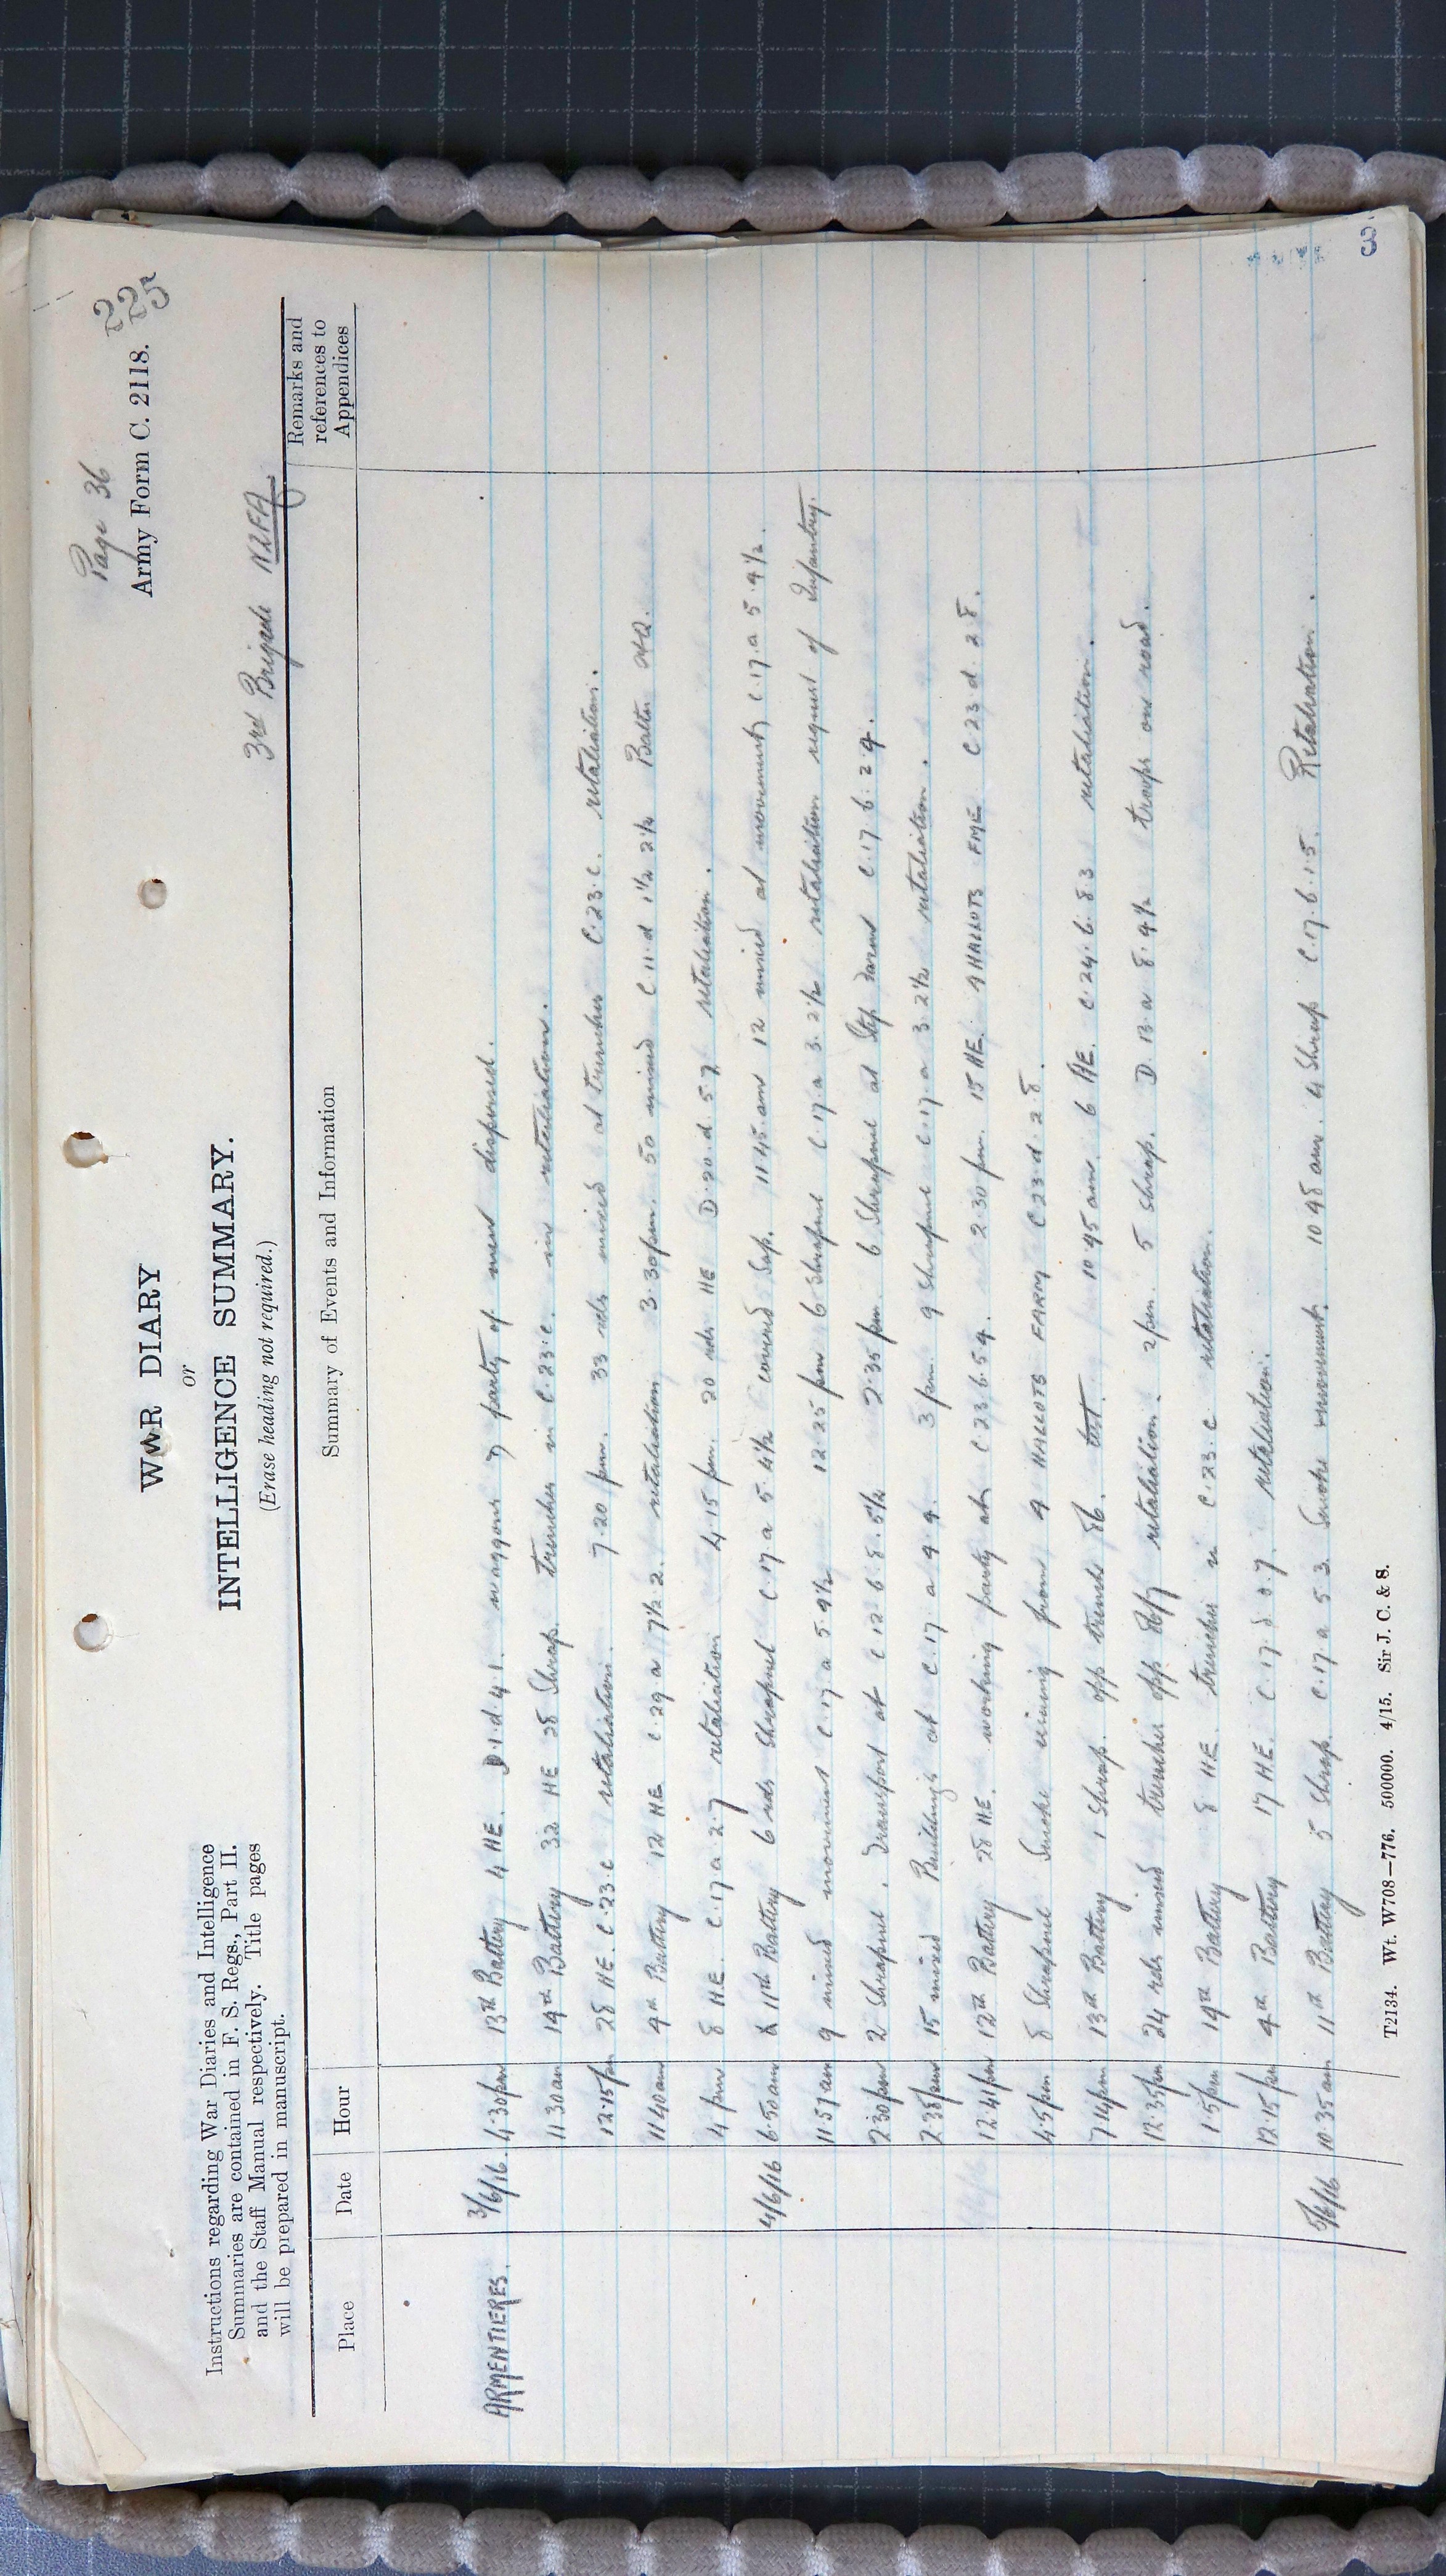 Page 36
225
Army Form C. 2118.
WAR DIARY
or
INTELLIGENCE SUMMARY.
(Erase heading not required.)
Instructions regarding War Diaries and Intelligence
Summaries are contained in F. S. Regs., Part II.
and the Staff Manual respectively. Title pages
will be prepared in manuscript.
3rd Brigade NZFA
Place Date Hour Summary of Events and Information Remarks and references to Appendices
ARMENTIERES. 3/6/16. 4.30pm 13th Battery 4 HE. D.1.d.4.1. waggons & party of men dispersed.
11 30 am 19th Battery 32 HE 28 Shrap. trenches in C.23.c. in retaliation.
12.15 pm 28 HE. C.23.c retaliation. 7.20 pm. 33 rds mixed at trenches C.23.c. retaliation.
11 40 am 4th Battery 12 HE C.29.a 7½.2. retaliation 3.30pm. 50 mixed C.11.d 1½ 2½ Battn HQ.
4 pm 8 H.E. C.17.a.2.7 retaliation 4.15 pm. 20 rds HE D.20.d.5.7 retaliation.
4/6/16 6.50 am 11th Battery 6 rds Shrapnel C.17.a 5.4½ covered Sap. 11.45.am 12 mixed at movement C.17.a 5.4½.
11.57 am 9 mixed movement C.17.a 5.4½ 12.25 pm 6 Shrapnel C.17.a 3.2½ retaliation request of Infantry.
2.30 pm 2 Shrapnel. Transport at C.12.b.8.5½ 2.35 pm. 6 Shrapnel at Step farm C.17.b.2.4.
2.38 pm 15 mixed Buildings at C.17.a 4.4. 3 pm. 9 Shrapnel C.17.a 3.2½ retaliation.
12.41 pm 12th Battery 28 H.E. working party at C.23.b.5.4. 2.30 pm. 15 HE. 4 HALLOTS FME C.23.d.2.8.
4.5 pm 8 Shrapnel. Smoke rising from 4 HALLOTS FARM C.23.d.2.8.
7.14 pm 13th Battery 1 Shrap. opp trench 86. test. 10.45 am. 6 HE. C.24.b.8.3 retaliation.
12.35 pm 24 rds mixed trenches opp 86/7 retaliation. 2pm. 5 Shrap. D.13.a 8.4½ troops on road.
1.5 pm 19th Battery 8 HE. trenches in C.23.c retaliation.
12.15 pm 4th Battery 17 HE. C.17.d.0.7. retaliation.
5/6/16 10.35 am 11th Battery 5 Shrap. C.17.a 5.3. Smoke movement. 10 45 am. 4 Shrap C.17.b.1.5. Retaliation.
T2134. Wt. W708—776. 500000. 4/15. Sir J. C. & S.
3